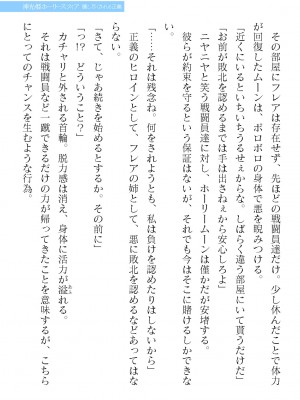 その部屋にフレアは存在せず、先ほどの戦闘員達だけ。少し休んだことで体力
が回復したムーンは、ボロボロの身体で悪を睨みつける。
「近くにいるといちいちうるせぇからな。しばらく違う部屋にいて貰うだけだ」
「お前が敗北を認めるまでは手は出さねぇから安心しろよ」
ニヤニヤと笑う戦闘員達に対し、ホーリームーンは僅かだが安堵する。
彼らが約束を守るという保証はないが、それでも今はそこに賭けるしかできな
い。
「……それは残念ね。何をされようとも、私は負けを認めたりはしないから」
正義のヒロインとして、フレアの姉として、悪に敗北を認めるなどあってはな
らない。
「さて、じゃあ続きを始めるとするか。その前に」
「つ!? どういうこと?」
カチャリと外される首輪。脱力感は消え、身体に活力が溢れる。
あふ
それは戦闘員など一蹴できるだけの力が帰ってきたことを意味するが、こちら
にとってのチャンスを生むような行為。